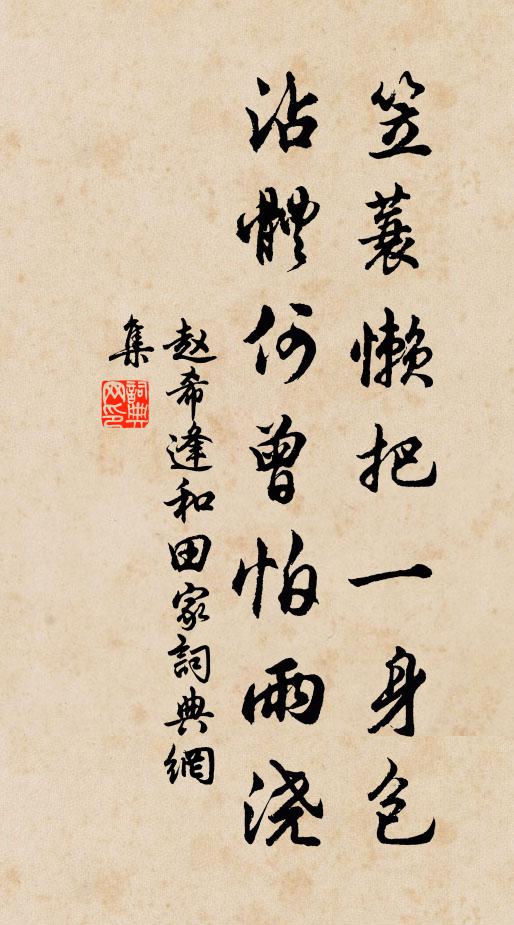 笠蓑懒把一身包
沾體何曾怕雨浇
赵希逢和田家詞典網
集
詞典
网印